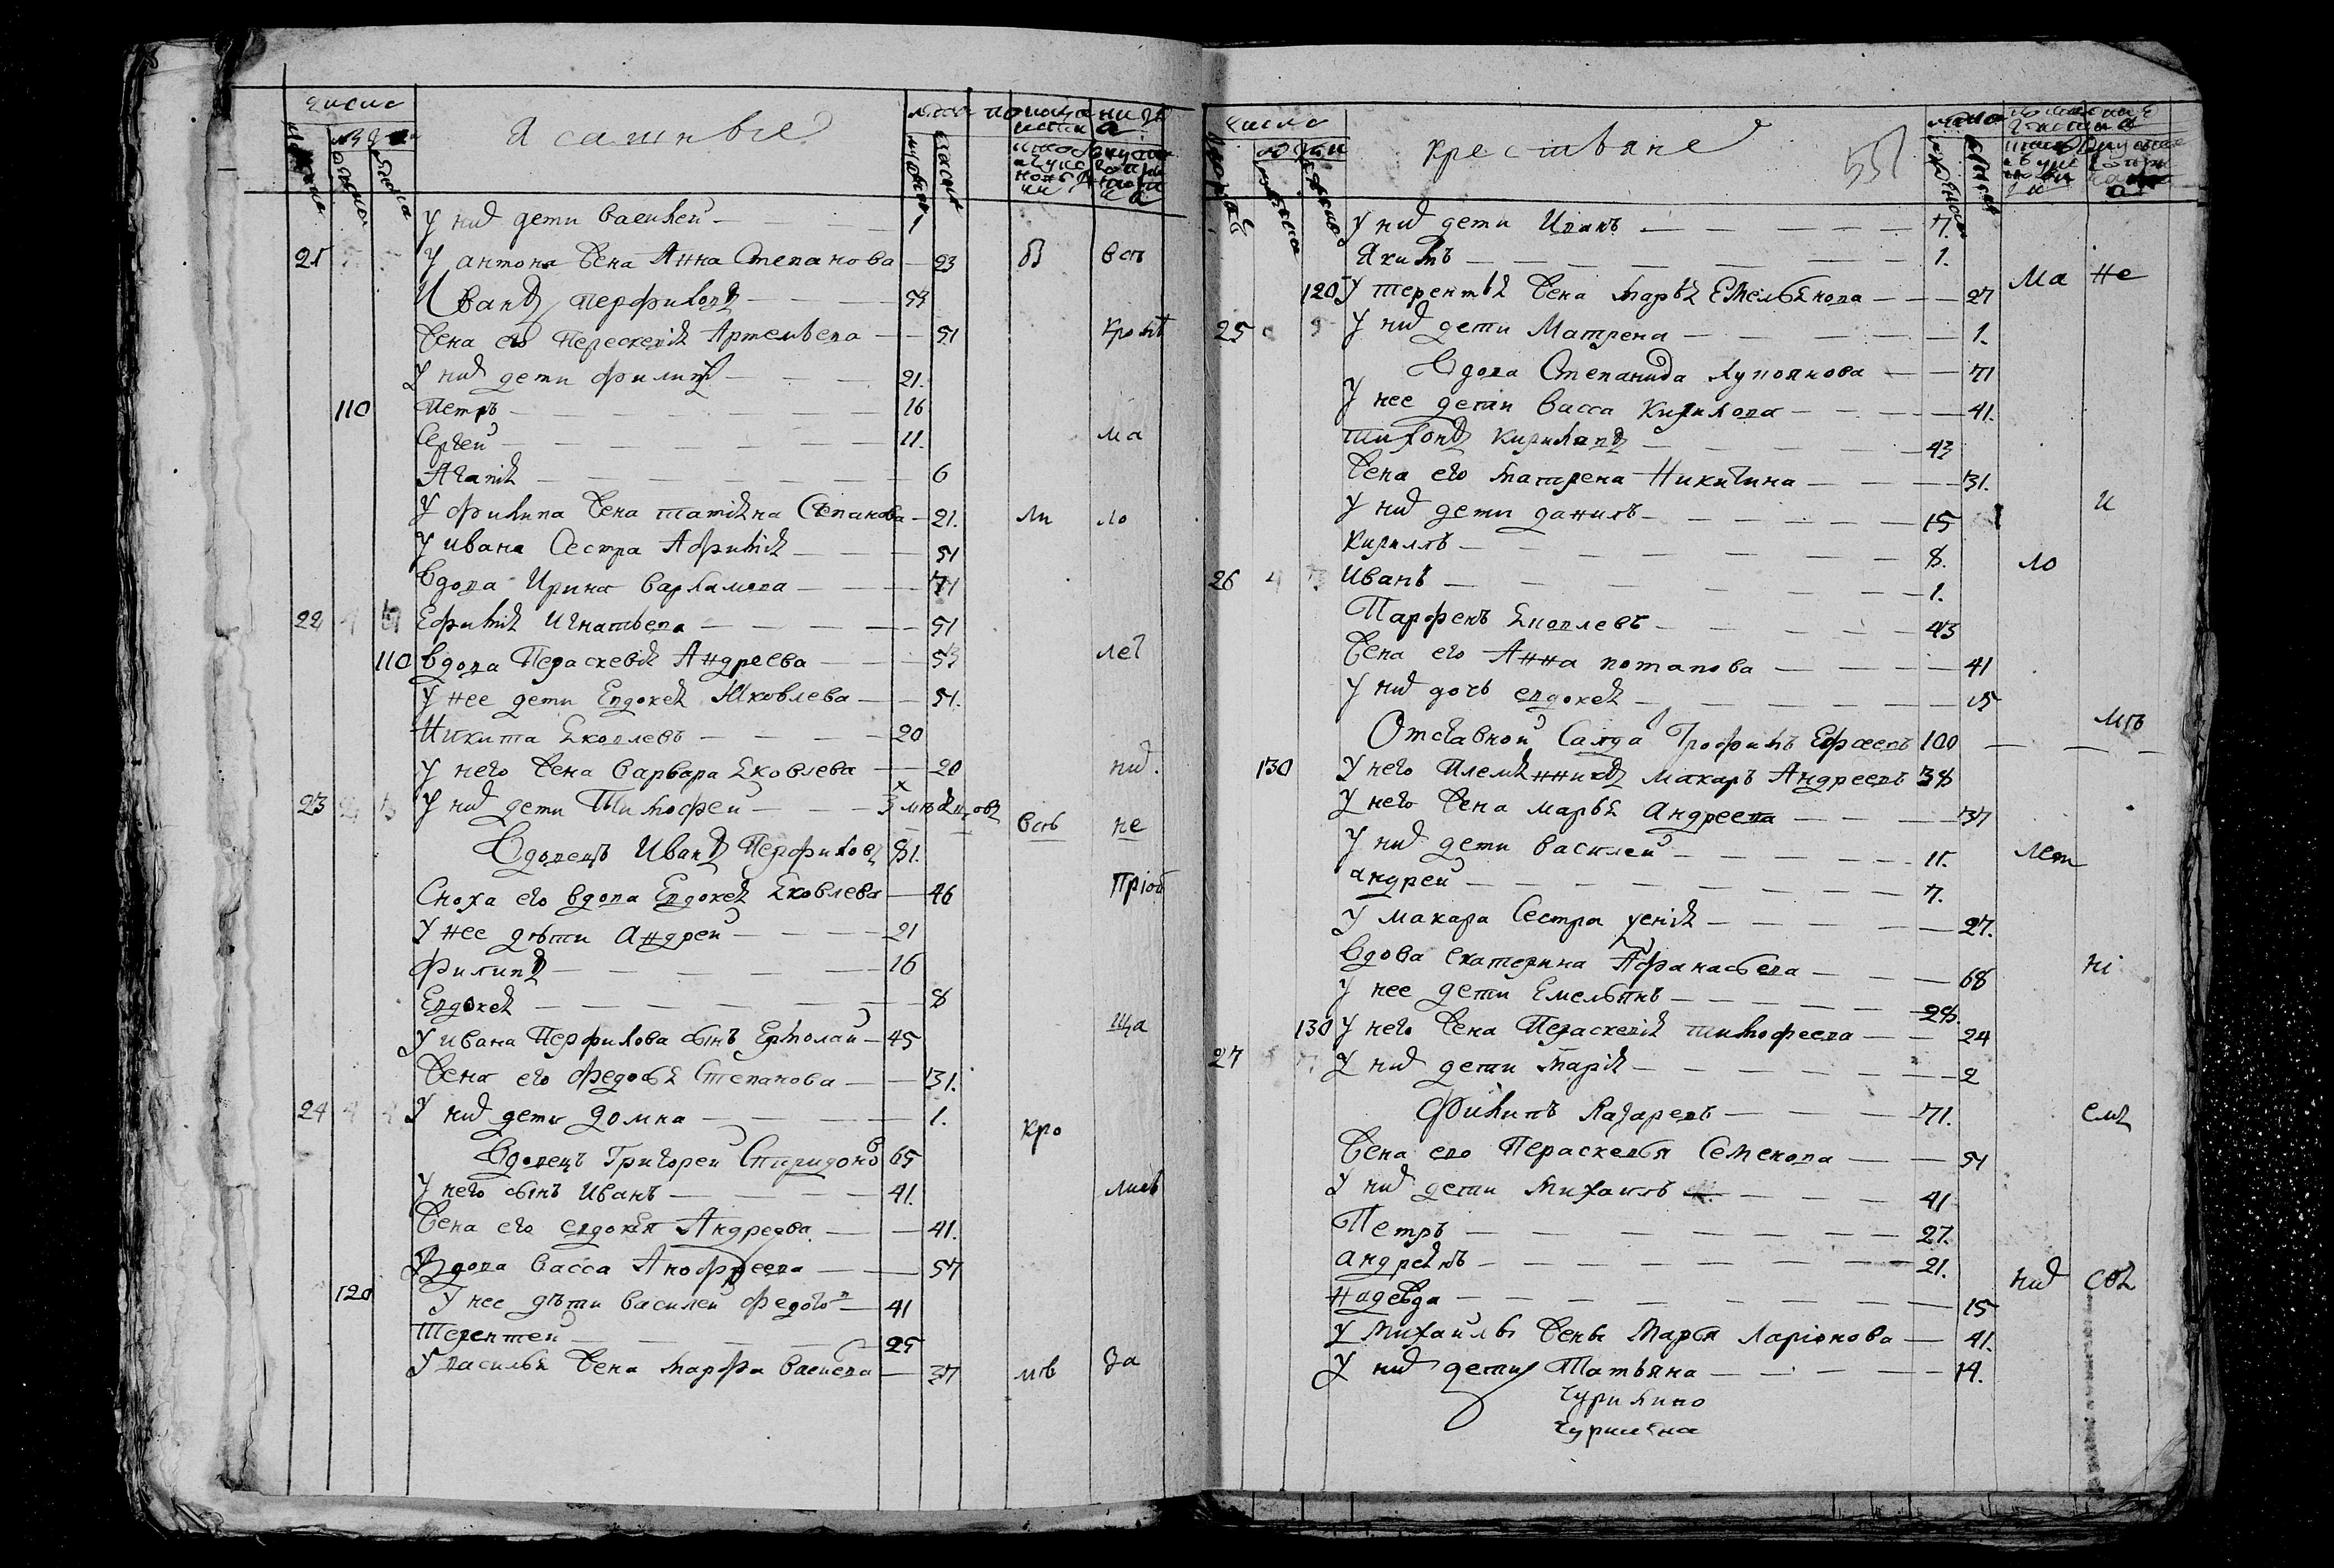 число
Ясашные
У них дети Василей 1
21 У антона Жена Анна Степанова 23 В всъ
Иванъ Перфиловъ 53
Жена его Перескевія Артемьева 51 кромѣ
У них дети филипъ 21.
110 Петръ 16
Сергей 11. ма
Агапія 6
У филипа Жена татіяна Степанова 21. ли ло
У ивана Сестра Афимія 51
Вдова Ирина Варламова 71
22 Ефимія Игнатьева 51
110 вдова Параскевія Андреева 53 лет
У нее дети Евдокея Яковлева 51.
Никита Яковлевъ 20
У него Жена Варвара Яковлева 20 них.
23 У них дети Тимофей 3 мѣсяцовъ
всъ не
Вдовецъ Иванъ Перфиловъ 81.
Сноха его вдова Евдокея Яковлева 46 пріоб
У нее дѣти Андрей 21
Филипъ 16
Евдокея 8
У ивана Перфилова сынъ Ермолай 45 ща
Жена его федосья Степанова 31.
24 У них дети Домна 1.
кро
Вдовецъ Григорей Спиридоно 65
У него сынъ Иванъ 41. лись
Жена его евдокея Андреева 41.
Вдова Васса Анофреева 57
120 У нее дѣти василей федоро 41
Терентей 25
У василья Жена Марфа Васиева 37 мъ За
число
крестьяне
У них дети Иванъ 7.
Якимъ 1.
Ма Не
120 У терентья Жена Марья Емельянова 27
25 У них дети Матрена 1.
Вдова Степанида Лупоянова 71
У нее дети Васса Кирилова 41.
тихонъ Кириловъ 43
Жена его матрена Никитина 31.
У них дети данилъ 15 и
Кириллъ 8. ло
26 Иванъ 1.
Парфенъ Яковлевъ 43
Жена его Анна потапова 41
У них дочь евдокея 15
Отставной Салда Трофимъ Ефреевъ 100 мъ
130 У него Племянникъ макаръ Андреевъ 38
У него Жена марья Андреева 37
У них дети василей 11. лет
андрей 7.
У макара Сестра уснія 27.
Вдова екатерина Афанасьева 68 ні
У нее дети Емельянъ 28.
130 У него Жена Параскевія тимофеева 24
27 У них дети Марія 2
Филипъ Лазаревъ 71. емя
Жена его Параскевья Семенова 51
У них дети Михаилъ 41
Петръ 27.
андреянъ 21.
них соя
надежда 15
У Михайлы Жены Марья Ларіонова 41.
У них дети Татьяна 14.
Чурилино